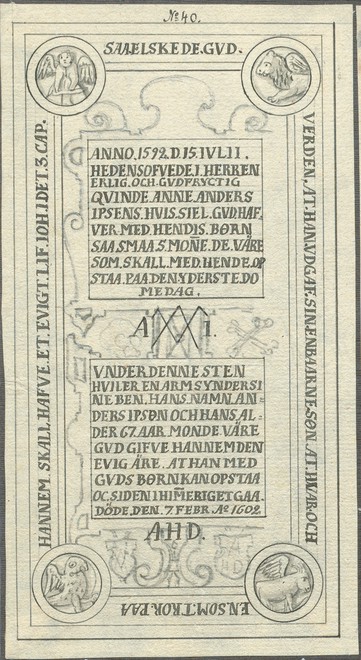 No 40.
SAA ELSKEDE.GVD.
VERDEN.AT.HAN.VDGAF.SIN.ENBAARNE.SØN.AT.HVAR.OCH
EN.SOM.TROR.PAA
HANNEM.SKALL.HAFVE.ET.EVIGT.LIF.IOH.I DET.3.CAP.
ANNO.1592.D.15.IVLII.
HEDENSOFVEDE.I.HERREN
ERLIG.OCH.GVDFRYCTIG
QVINDE.ANNE.ANDERS
IPSENS.HVIS.SIEL.GVD.HAF
VER.MED.HENDIS.BØRN
SAA.SMAA.S.MOÑE.DE.VÄRE
SOM.SKALL.MED.HENDE.OP
STAA.PAA.DEN.YDERSTE.DO
MEDAG.
A I.
VNDER DENNE STEN
HVILER EN ARM SYNDER SI
NE BEN, HANS. NAMN AN=
DERS IPSØN OCH HANS AL=
DER 67. AAR MONDE VÄRE
GVD GIFVE HANNEM DEN
EVIG ÄRE. AT HAN MED
GVDS BØRN KAN OPSTAA
OC. SIDEN I HIM̃ERIGET GAA.
DÖDE. DEN. 7 FEBR. Ao 1602.
AHD.